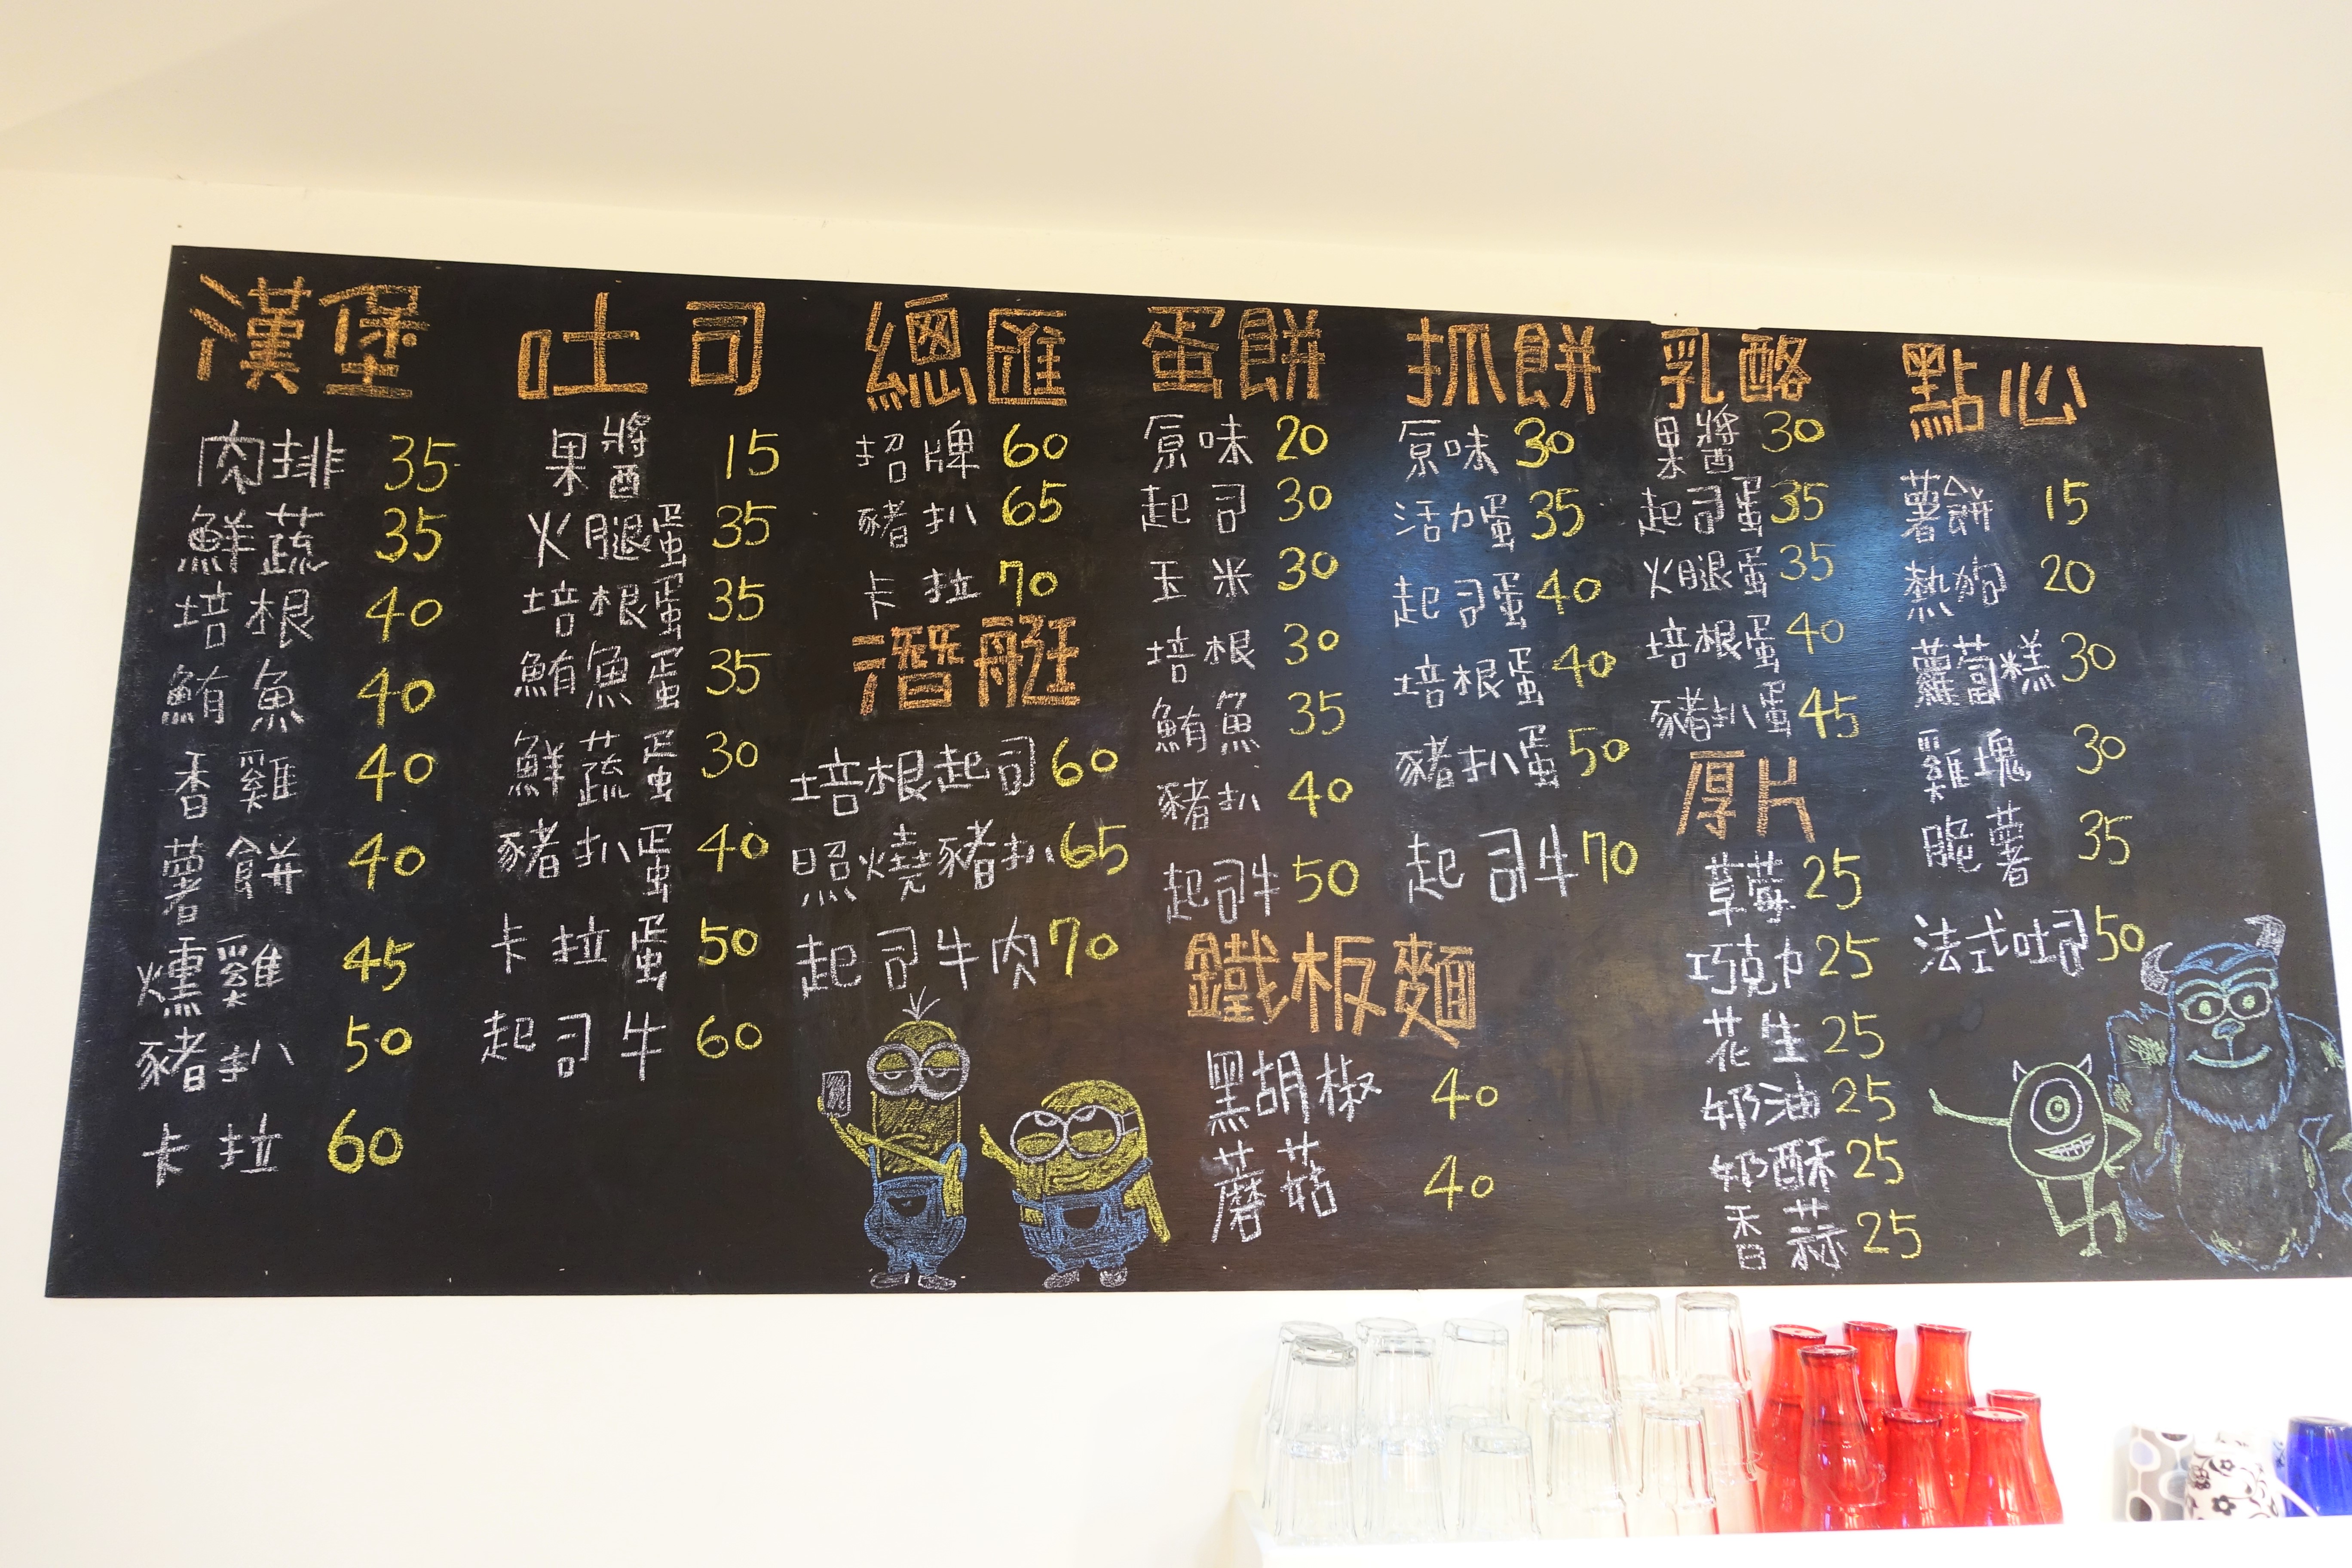 漢堡
肉排 35
鮮蔬 35
培根 40
鮪魚 40
香雞 40
薯餅 40
燻雞 45
豬扒 50
卡拉 60
吐司
果醬 15
火腿蛋 35
培根蛋 35
鮪魚蛋 35
鮮蔬蛋 30
豬扒蛋 40
卡拉蛋 50
起司牛 60
總匯
招牌 60
豬扒 65
卡拉 70
潛艇
培根起司 60
照燒豬扒 65
起司牛肉 70
蛋餅
原味 20
起司 30
玉米 30
培根 30
鮪魚 35
豬扒 40
起司牛 50
抓餅
原味 30
活力蛋 35
起司蛋 40
培根蛋 40
豬扒蛋 50
起司牛 70
鐵板麵
黑胡椒 40
蘑菇 40
乳酪
果醬 30
起司蛋 35
火腿蛋 35
培根蛋 40
豬扒蛋 45
厚片
草莓 25
巧克力 25
花生 25
奶油 25
奶酥 25
香蒜 25
點心
薯餅 15
熱狗 20
蘿蔔糕 30
雞塊 30
脆薯 35
法式吐司 50